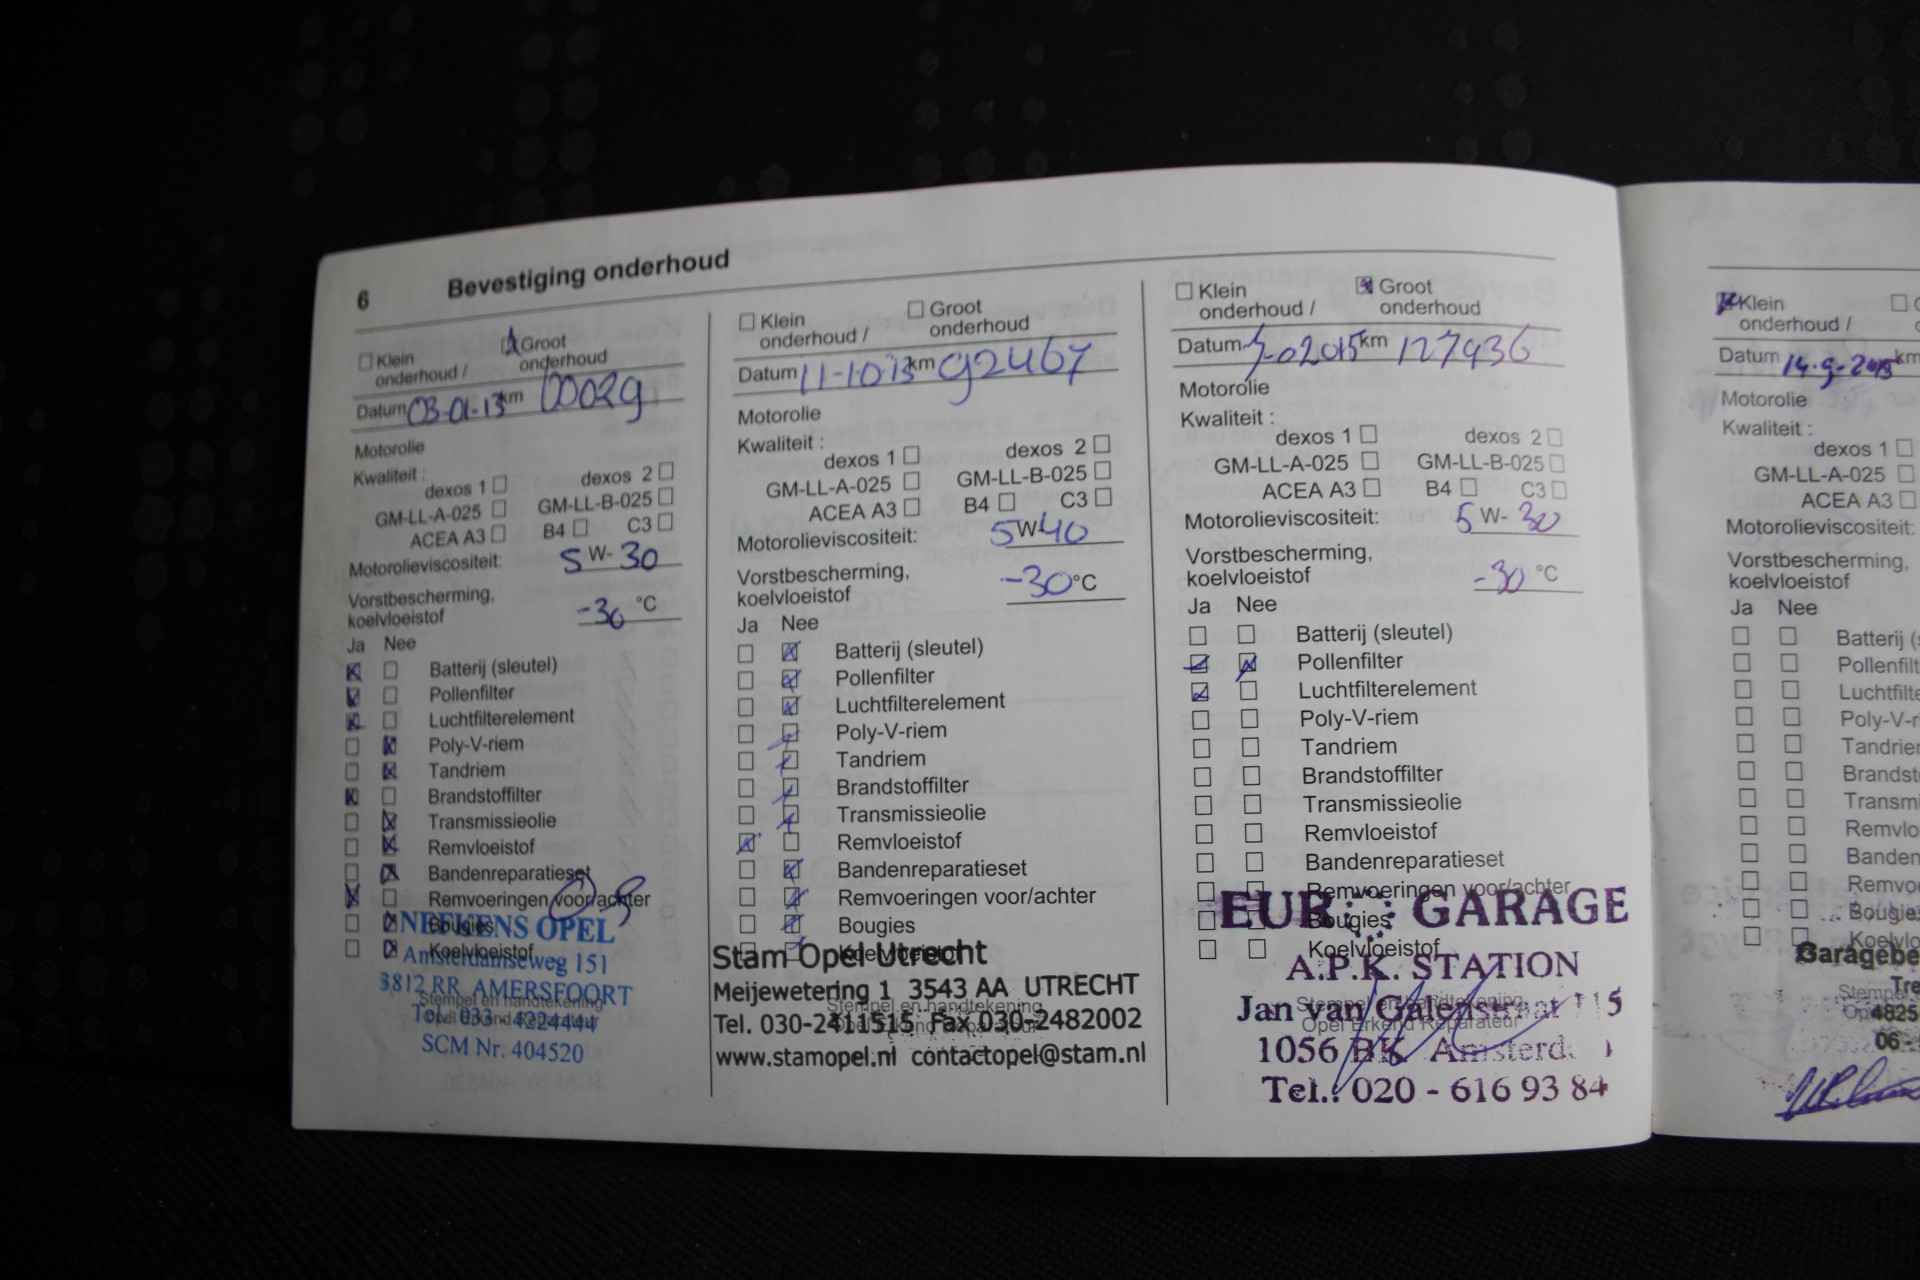 6 Bevestiging onderhoud
Klein onderhoud / Groot onderhoud
Datum 03-01-13 km
Motorolie
Kwaliteit :
dexos 1 dexos 2
GM-LL-A-025 GM-LL-B-025
ACEA A3 B4 C3
Motorolieviscositeit: 5 W- 30
Vorstbescherming,
koelvloeistof -30 °C
Ja Nee
Batterij (sleutel)
Pollenfilter
Luchtfilterelement
Poly-V-riem
Tandriem
Brandstoffilter
Transmissieolie
Remvloeistof
Bandenreparatieset
Remvoeringen voor/achter
Bougies
Koelvloeistof
NEFKENS OPEL
Amsterdamseweg 151
3812 RR AMERSFOORT
Stempel en handtekening
Tel. 033 - 4224444
SCM Nr. 404520
Klein onderhoud / Groot onderhoud
Datum 11-10-13 km 92467
Motorolie
Kwaliteit :
dexos 1 dexos 2
GM-LL-A-025 GM-LL-B-025
ACEA A3 B4 C3
Motorolieviscositeit: 5 W- 40
Vorstbescherming,
koelvloeistof -30 °C
Ja Nee
Batterij (sleutel)
Pollenfilter
Luchtfilterelement
Poly-V-riem
Tandriem
Brandstoffilter
Transmissieolie
Remvloeistof
Bandenreparatieset
Remvoeringen voor/achter
Bougies
Koelvloeistof
Stam Opel Utrecht
Meijewetering 1 3543 AA UTRECHT
Stempel en handtekening
Tel. 030-2411515 Fax 030-2482002
www.stamopel.nl contactopel@stam.nl
Klein onderhoud / Groot onderhoud
Datum km 127936
Motorolie
Kwaliteit :
dexos 1 dexos 2
GM-LL-A-025 GM-LL-B-025
ACEA A3 B4 C3
Motorolieviscositeit: 5 W- 30
Vorstbescherming,
koelvloeistof -30 °C
Ja Nee
Batterij (sleutel)
Pollenfilter
Luchtfilterelement
Poly-V-riem
Tandriem
Brandstoffilter
Transmissieolie
Remvloeistof
Bandenreparatieset
Remvoeringen voor/achter
Bougies
Koelvloeistof
GARAGE
A.P.K. STATION
Stempel en handtekening
Jan van Galenstraat 115
Opel Erkend Reparateur
1056 BK Amsterd
Tel.: 020 - 616 93 84
Klein
onderhoud /
Datum 14-9-2015 km
Motorolie
Kwaliteit :
dexos 1
GM-LL-A-025
ACEA A3
Motorolieviscositeit:
Vorstbescherming,
koelvloeistof
Ja Nee
Batterij (s
Pollenfilt
Luchtfilte
Poly-V-r
Tandrie
Brandst
Transmi
Remvlo
Banden
Remvo
Bougie
Koelvlo
Garagebe
Tre
Stempel
4825
06 -